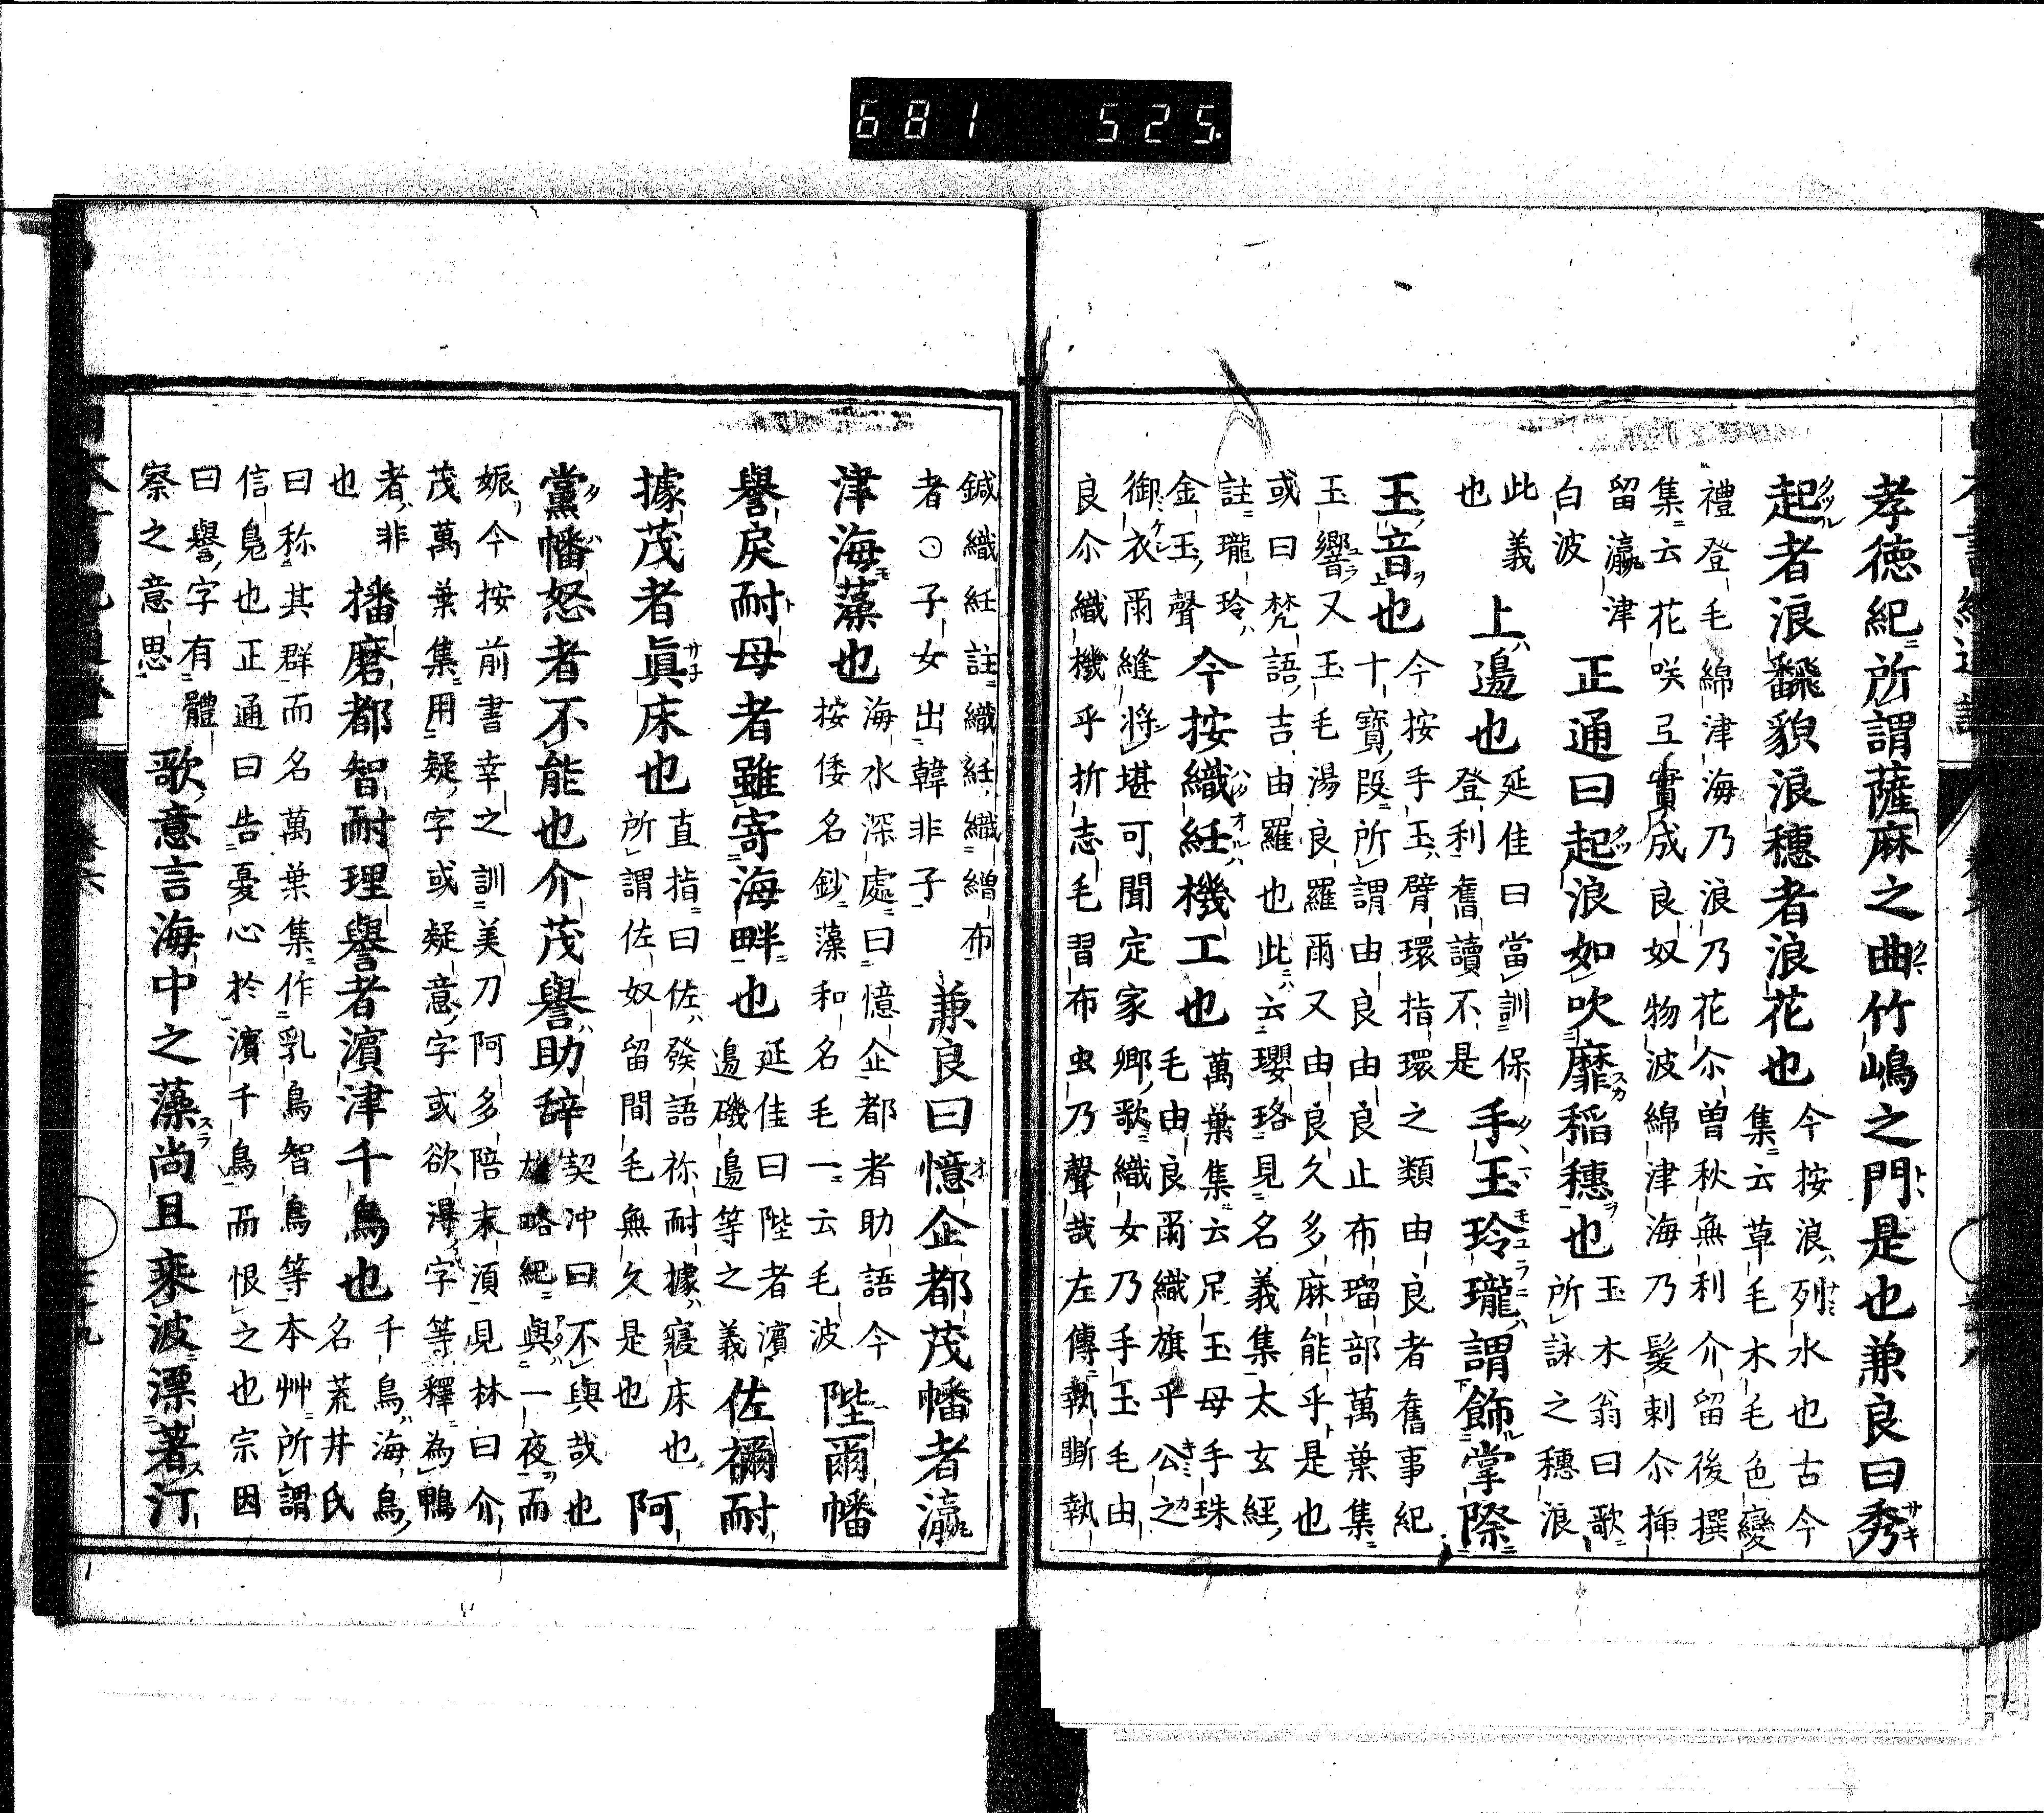 681 525
孝徳紀所謂薩麻之曲竹嶋之門是也兼良曰秀
起者浪飜貌浪穗者浪花也
今按浪列水也古今
集云草毛木毛色變
禮登毛綿津海乃浪乃花尒曽秋無利介留後撰
集云花咲弖實成良奴物波綿津海乃髪刺尒挿
留瀛津
白波
正通曰起浪如吹靡稲穗也
玉木翁曰歌
所詠之穗浪
此義
也
上邊也
延佳曰當訓保
登利舊讀不是
手玉玲瓏謂飾掌際
玉音也
今按手玉臂環指環之類由良者舊事紀
十寶段所謂由良由良止布瑠部萬葉集
玉響又玉毛湯良羅爾又由良久多麻能乎是也
或曰梵語吉由羅也此云瓔珞見名義集太玄經
註瓏玲
金玉聲
今按織紝機工也
萬葉集云足玉母手珠
毛由良爾織旗乎公之
御衣爾縫將堪可聞定家卿歌織女乃手玉毛由
良尒織機乎折志毛習布虫乃聲哉左傳執斲執
鍼織紝註織紝織繒布
者○子女出韓非子
兼良曰憶企都茂幡者瀛
津海藻也
海水深處曰憶企都者助語今
按倭名鈔藻和名毛一云毛波
陛爾幡
譽戻耐母者雖寄海畔也
延佳曰陛者濱
邊磯邊等之義
佐禰耐
據茂者眞床也
直指曰佐發語祢耐據寢床也
所謂佐奴留間毛無久是也
阿
黨幡怒者不能也介茂譽助辞
契沖曰不與哉也
雄略紀與一夜而
娠今按前書幸之訓美刀阿多陪末湏見林曰介
茂萬葉集用疑字或疑意字或欲得字等釋為鴨
者非
也
播磨都智耐理譽者濱津千鳥也
千鳥海鳥
名荒井氏
曰称其群而名萬葉集作乳鳥智鳥等本艸所謂
信鳧也正通曰告憂心於濱千鳥而恨之也宗因
曰譽字有體
察之意思
歌意言海中之藻尚且乘波漂著汀